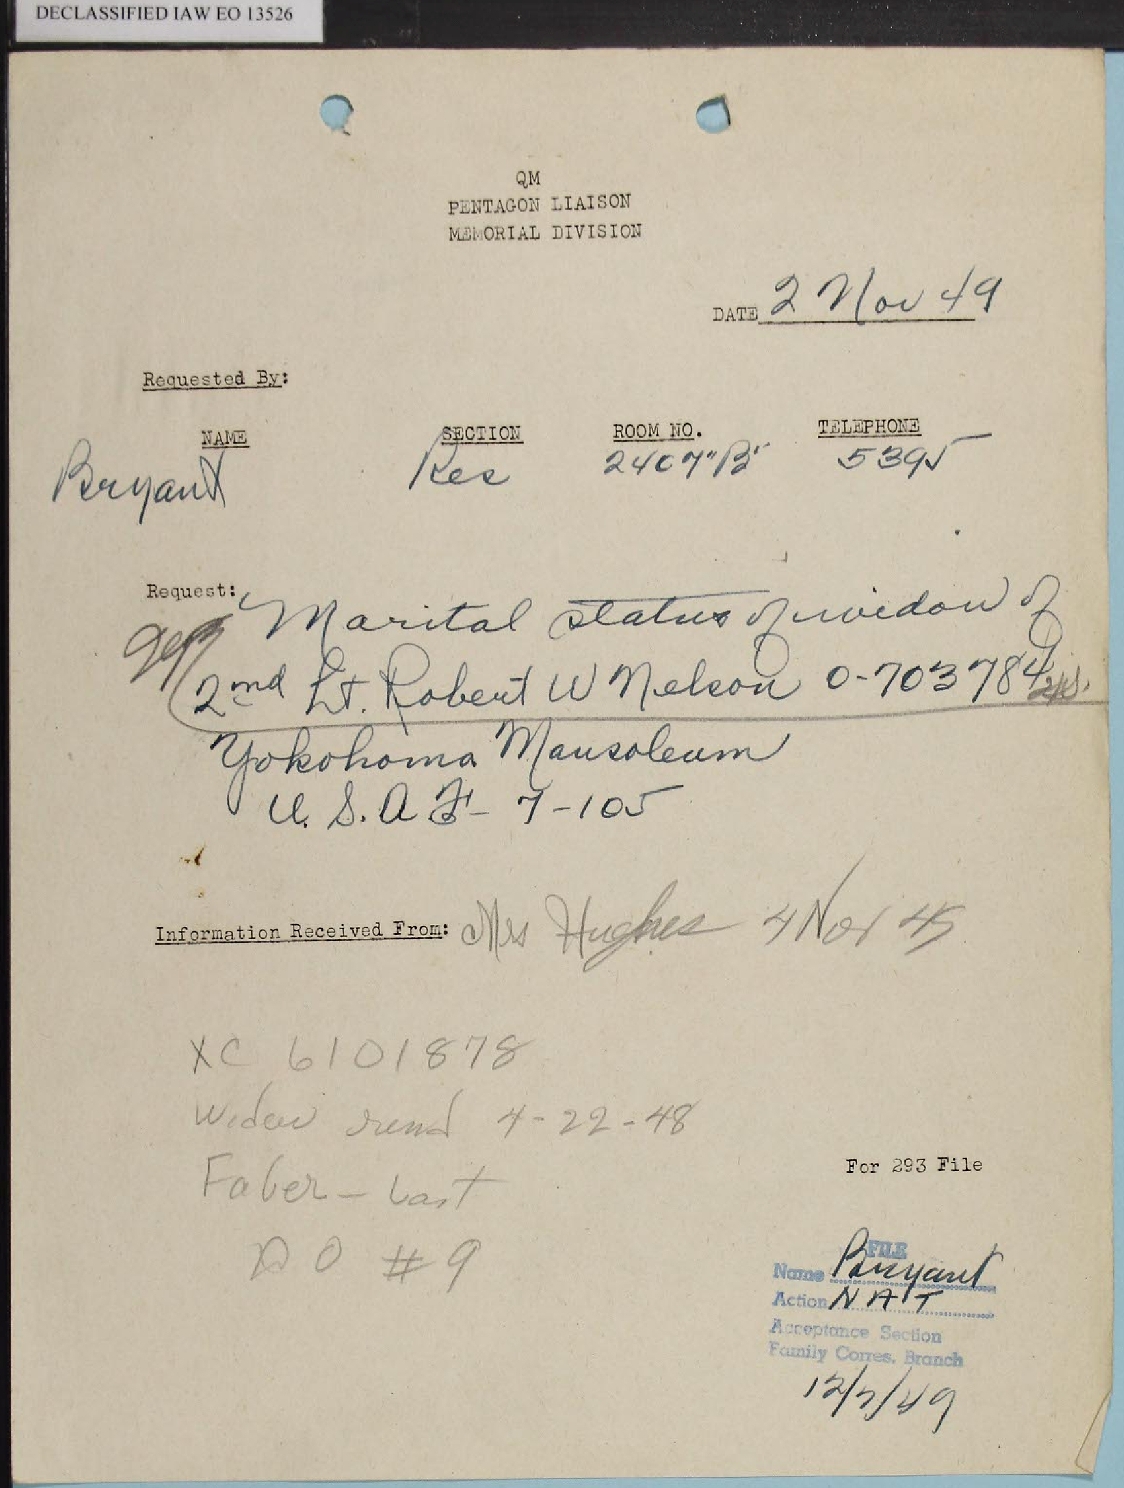 DECLASSIFIED IAW EO 13526
QM
PENTAGON LIAISON
MEMORIAL DIVISION
DATE 2 Nov 49
Requested By:
NAME SECTION ROOM NO. TELEPHONE
Bryant Res 2407"B" 5395
Request: Marital status of widow of
2nd Lt. Robert W Nelson 0-703784
Yokohoma Mausoleum
U.S.A.F- 7-105
Information Received From: Mrs Hughes 4 Nov 49
XC 6101878
Widow remd 4-22-48
Faber - Last
D O #9
For 293 File
FILE
Name Bryant
Action N A T
Acceptance Section
Family Corres. Branch
12/7/49